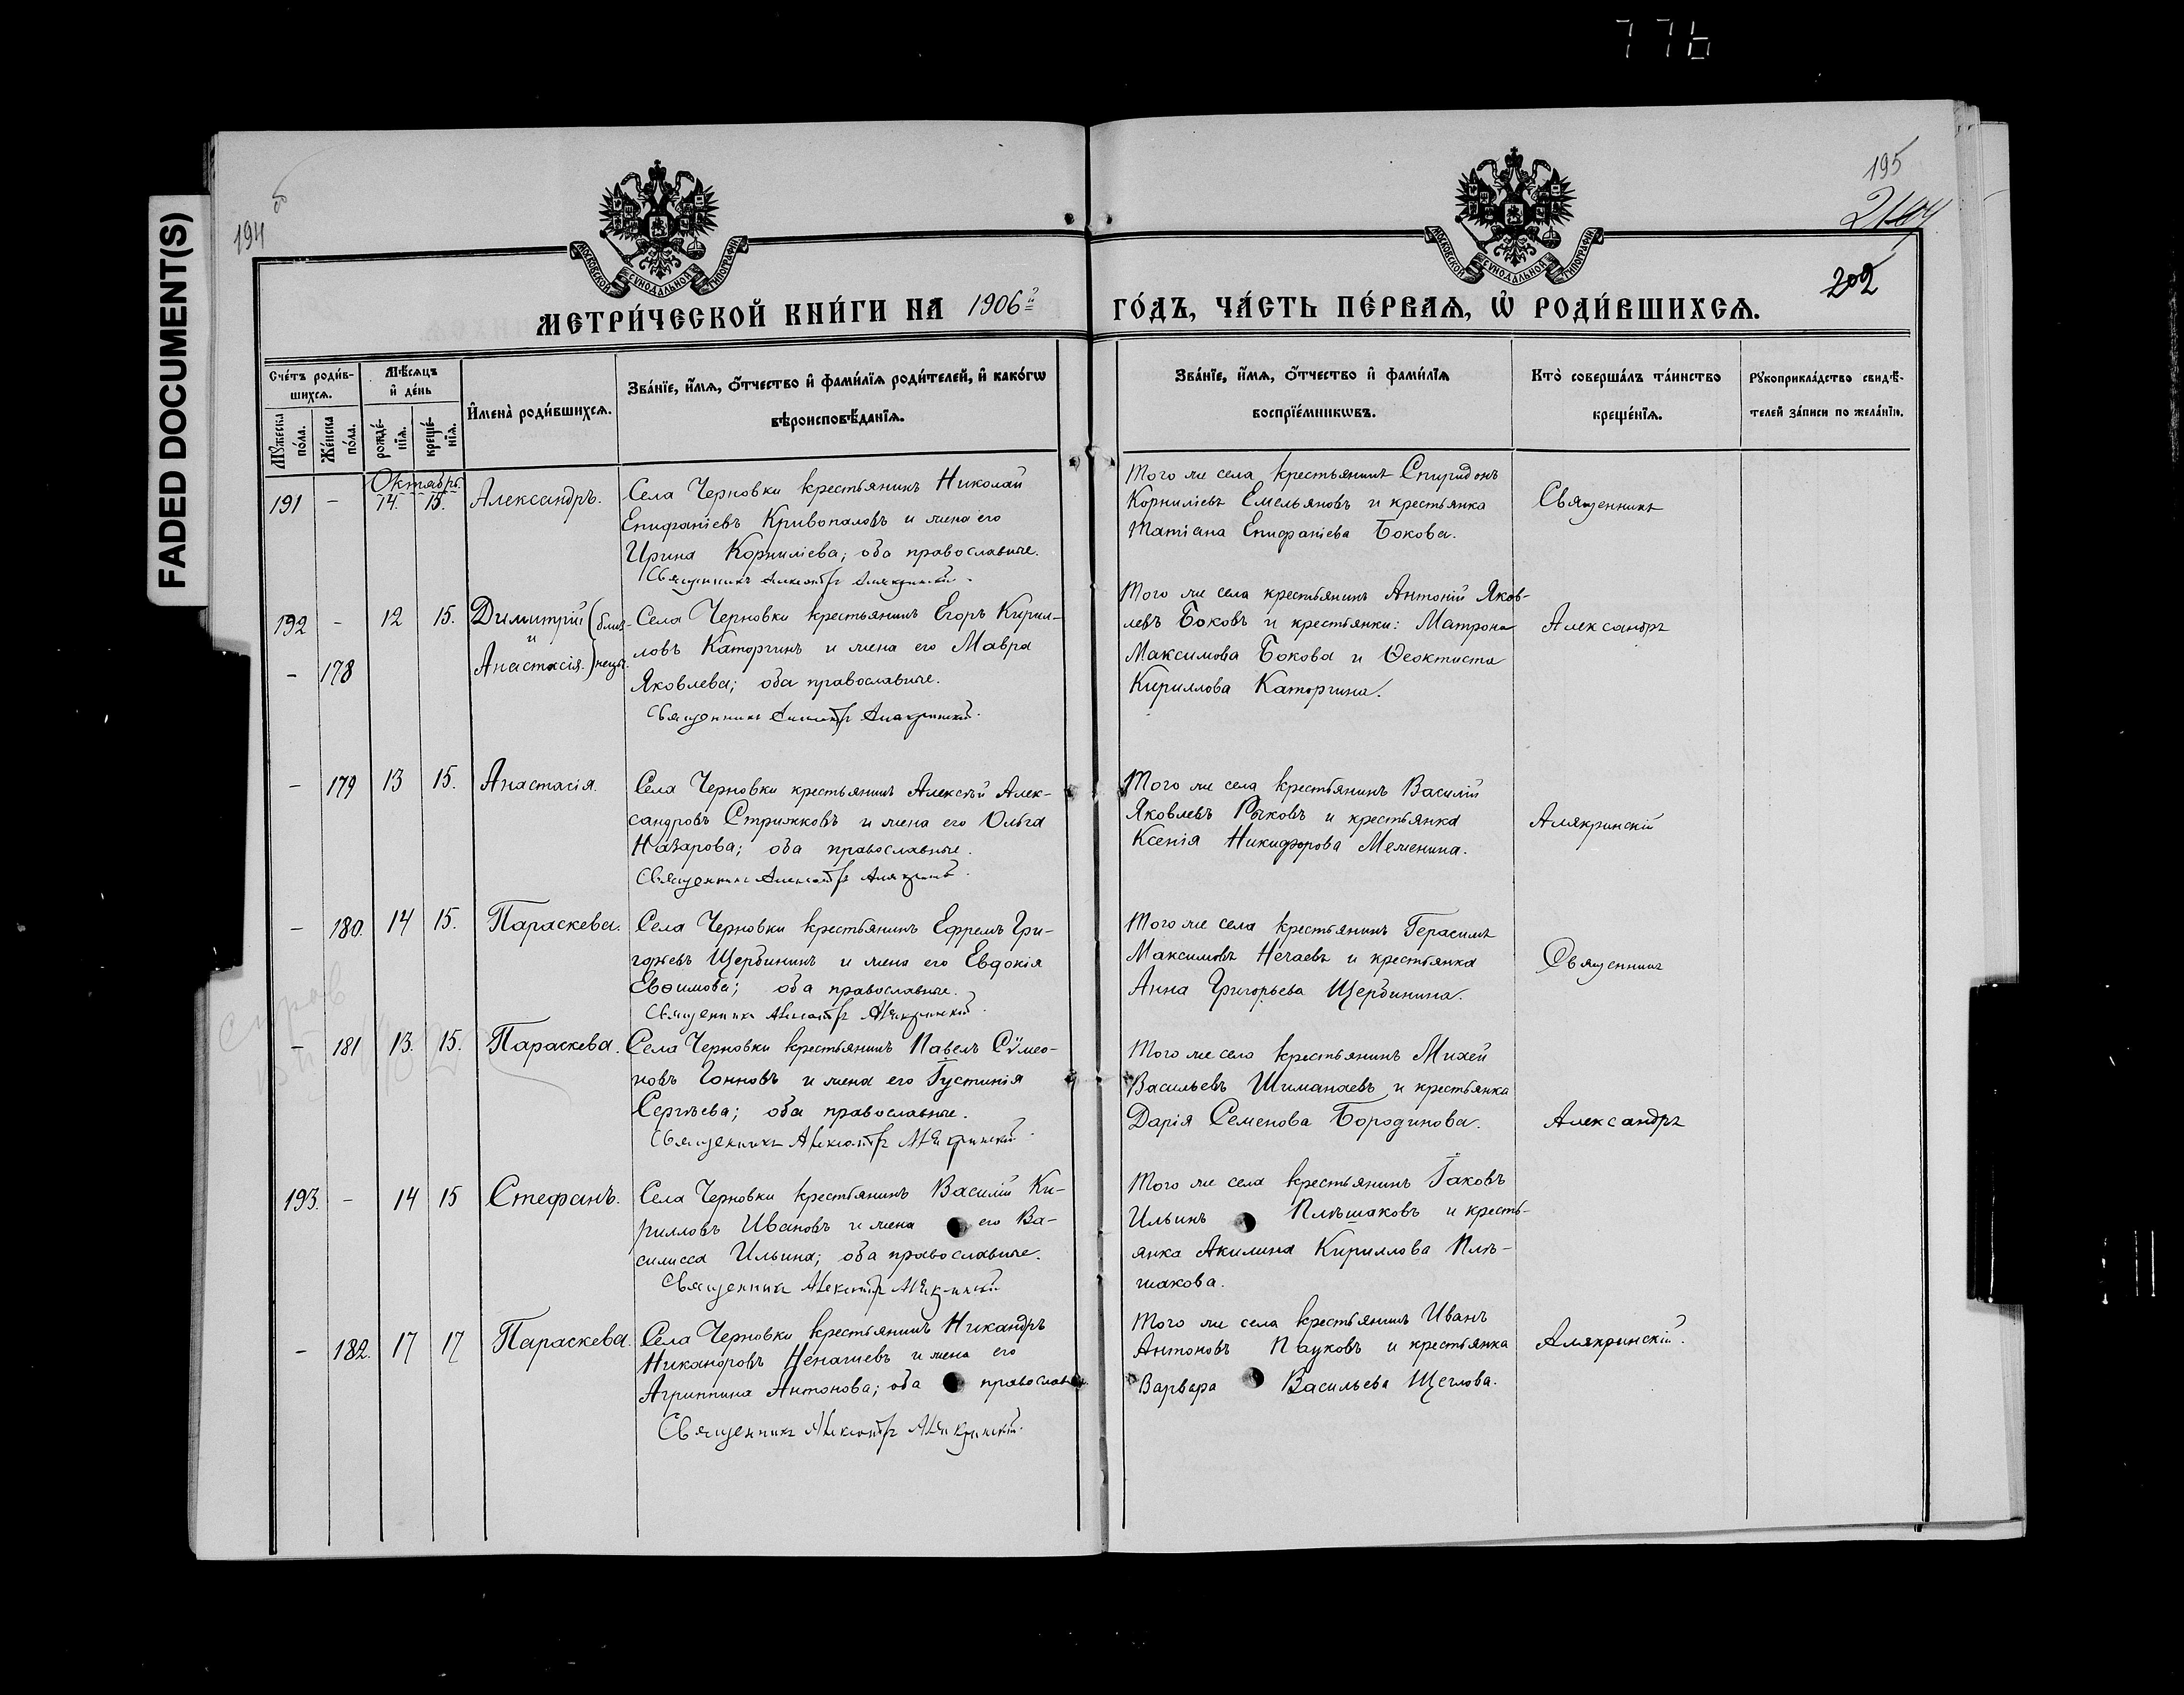 776
FADED DOCUMENT(S)
194 об
195
2104
202
МОСКОВСКОЙ СѴНОДАЛЬНОЙ ТИПОГРАФІИ
МОСКОВСКОЙ СѴНОДАЛЬНОЙ ТИПОГРАФІИ
МЕТРИ́ЧЕСКОЙ КНИ́ГИ НА 1906й
ГО́ДЪ, ЧА́СТЬ ПЕ́РВАѦ, Ѡ҆ РОДИ́ВШИХСѦ.
Сче́тъ роди́в-
шихсѧ.
Мꙋ́жеска по́ла.
Же́нска по́ла.
Мѣ́сѧцъ
и҆ де́нь
рожде́-
нїѧ.
креще́-
нїѧ.
И҆мена̀ роди́вшихсѧ.
Зва́нїе, и҆́мѧ, ѻ҆́тчество и҆ фами́лїѧ роди́телей, и҆ како́гѡ
вѣроисповѣ́данїѧ.
Зва́нїе, и҆́мѧ, ѻ҆́тчество и҆ фами́лїѧ
воспрїе́мникѡвъ.
Кто̀ соверша́лъ та́инство
креще́нїѧ.
Рꙋкоприкла́дство свидѣ́-
телей за́писи по жела́нїю.
Октябрь.
191 - 14. 15. Александръ.
Села Черновки крестьянинъ Николай
Епифаніевъ Кривопаловъ и жена его
Ирина Корниліева; оба православные.
Священникъ Александръ Алякринскій.
Того же села крестьянинъ Спиридонъ
Корниліевъ Емельяновъ и крестьянка
Татіана Епифаніева Бокова.
Священникъ
192 - 12 15. Димитрій (близ-
и
- 178 Анастасія.) нецы.
Села Черновки крестьянинъ Егоръ Кирил-
ловъ Каторгинъ и жена его Мавра
Яковлева; оба православные.
Священникъ Александръ Алякринскій.
Того же села крестьянинъ Антоній Яков-
левъ Боковъ и крестьянки: Матрона
Максимова Бокова и Ѳеоктиста
Кириллова Каторгина.
Александръ
- 179 13 15. Анастасія.
Села Черновки крестьянинъ Алексѣй Алек-
сандровъ Стрижковъ и жена его Ольга
Назарова; оба православные.
Священникъ Александръ Алякринскій.
Того же села крестьянинъ Василій
Яковлевъ Рыковъ и крестьянка
Ксенія Никифорова Меженина.
Алякринскій
- 180. 14 15. Параскева.
Села Черновки крестьянинъ Ефремъ Гри-
горьевъ Щербининъ и жена его Евдокія
Евѳимова; оба православные.
Священникъ Александръ Алякринскій.
Того же села крестьянинъ Герасимъ
Максимовъ Нечаевъ и крестьянка
Анна Григорьева Щербинина.
Священникъ
- 181 13. 15. Параскева.
Села Черновки крестьянинъ Павелъ Сѵмео-
новъ Гонновъ и жена его Іустинія
Сергѣева; оба православные.
Священникъ Александръ Алякринскій.
Того же села крестьянинъ Михей
Васильевъ Шиманаевъ и крестьянка
Дарія Семенова Бородинова.
Александръ
193. - 14 15 Стефанъ.
Села Черновки крестьянинъ Василій Ки-
рилловъ Ивановъ и жена его Ва-
силисса Ильина; оба православные.
Священникъ Александръ Алякринскій
Того же села крестьянинъ Іаковъ
Ильинъ Плѣшаковъ и кресть-
янка Акилина Кириллова Плѣ-
шакова.
- 182. 17 17 Параскева
Села Черновки крестьянинъ Никандръ
Никаноровъ Ненашевъ и жена его
Агриппина Антонова; оба православн.
Священникъ Александръ Алякринскій.
Того же села крестьянинъ Иванъ
Антоновъ Пауковъ и крестьянка
Варвара Васильева Щеглова.
Алякринскій.